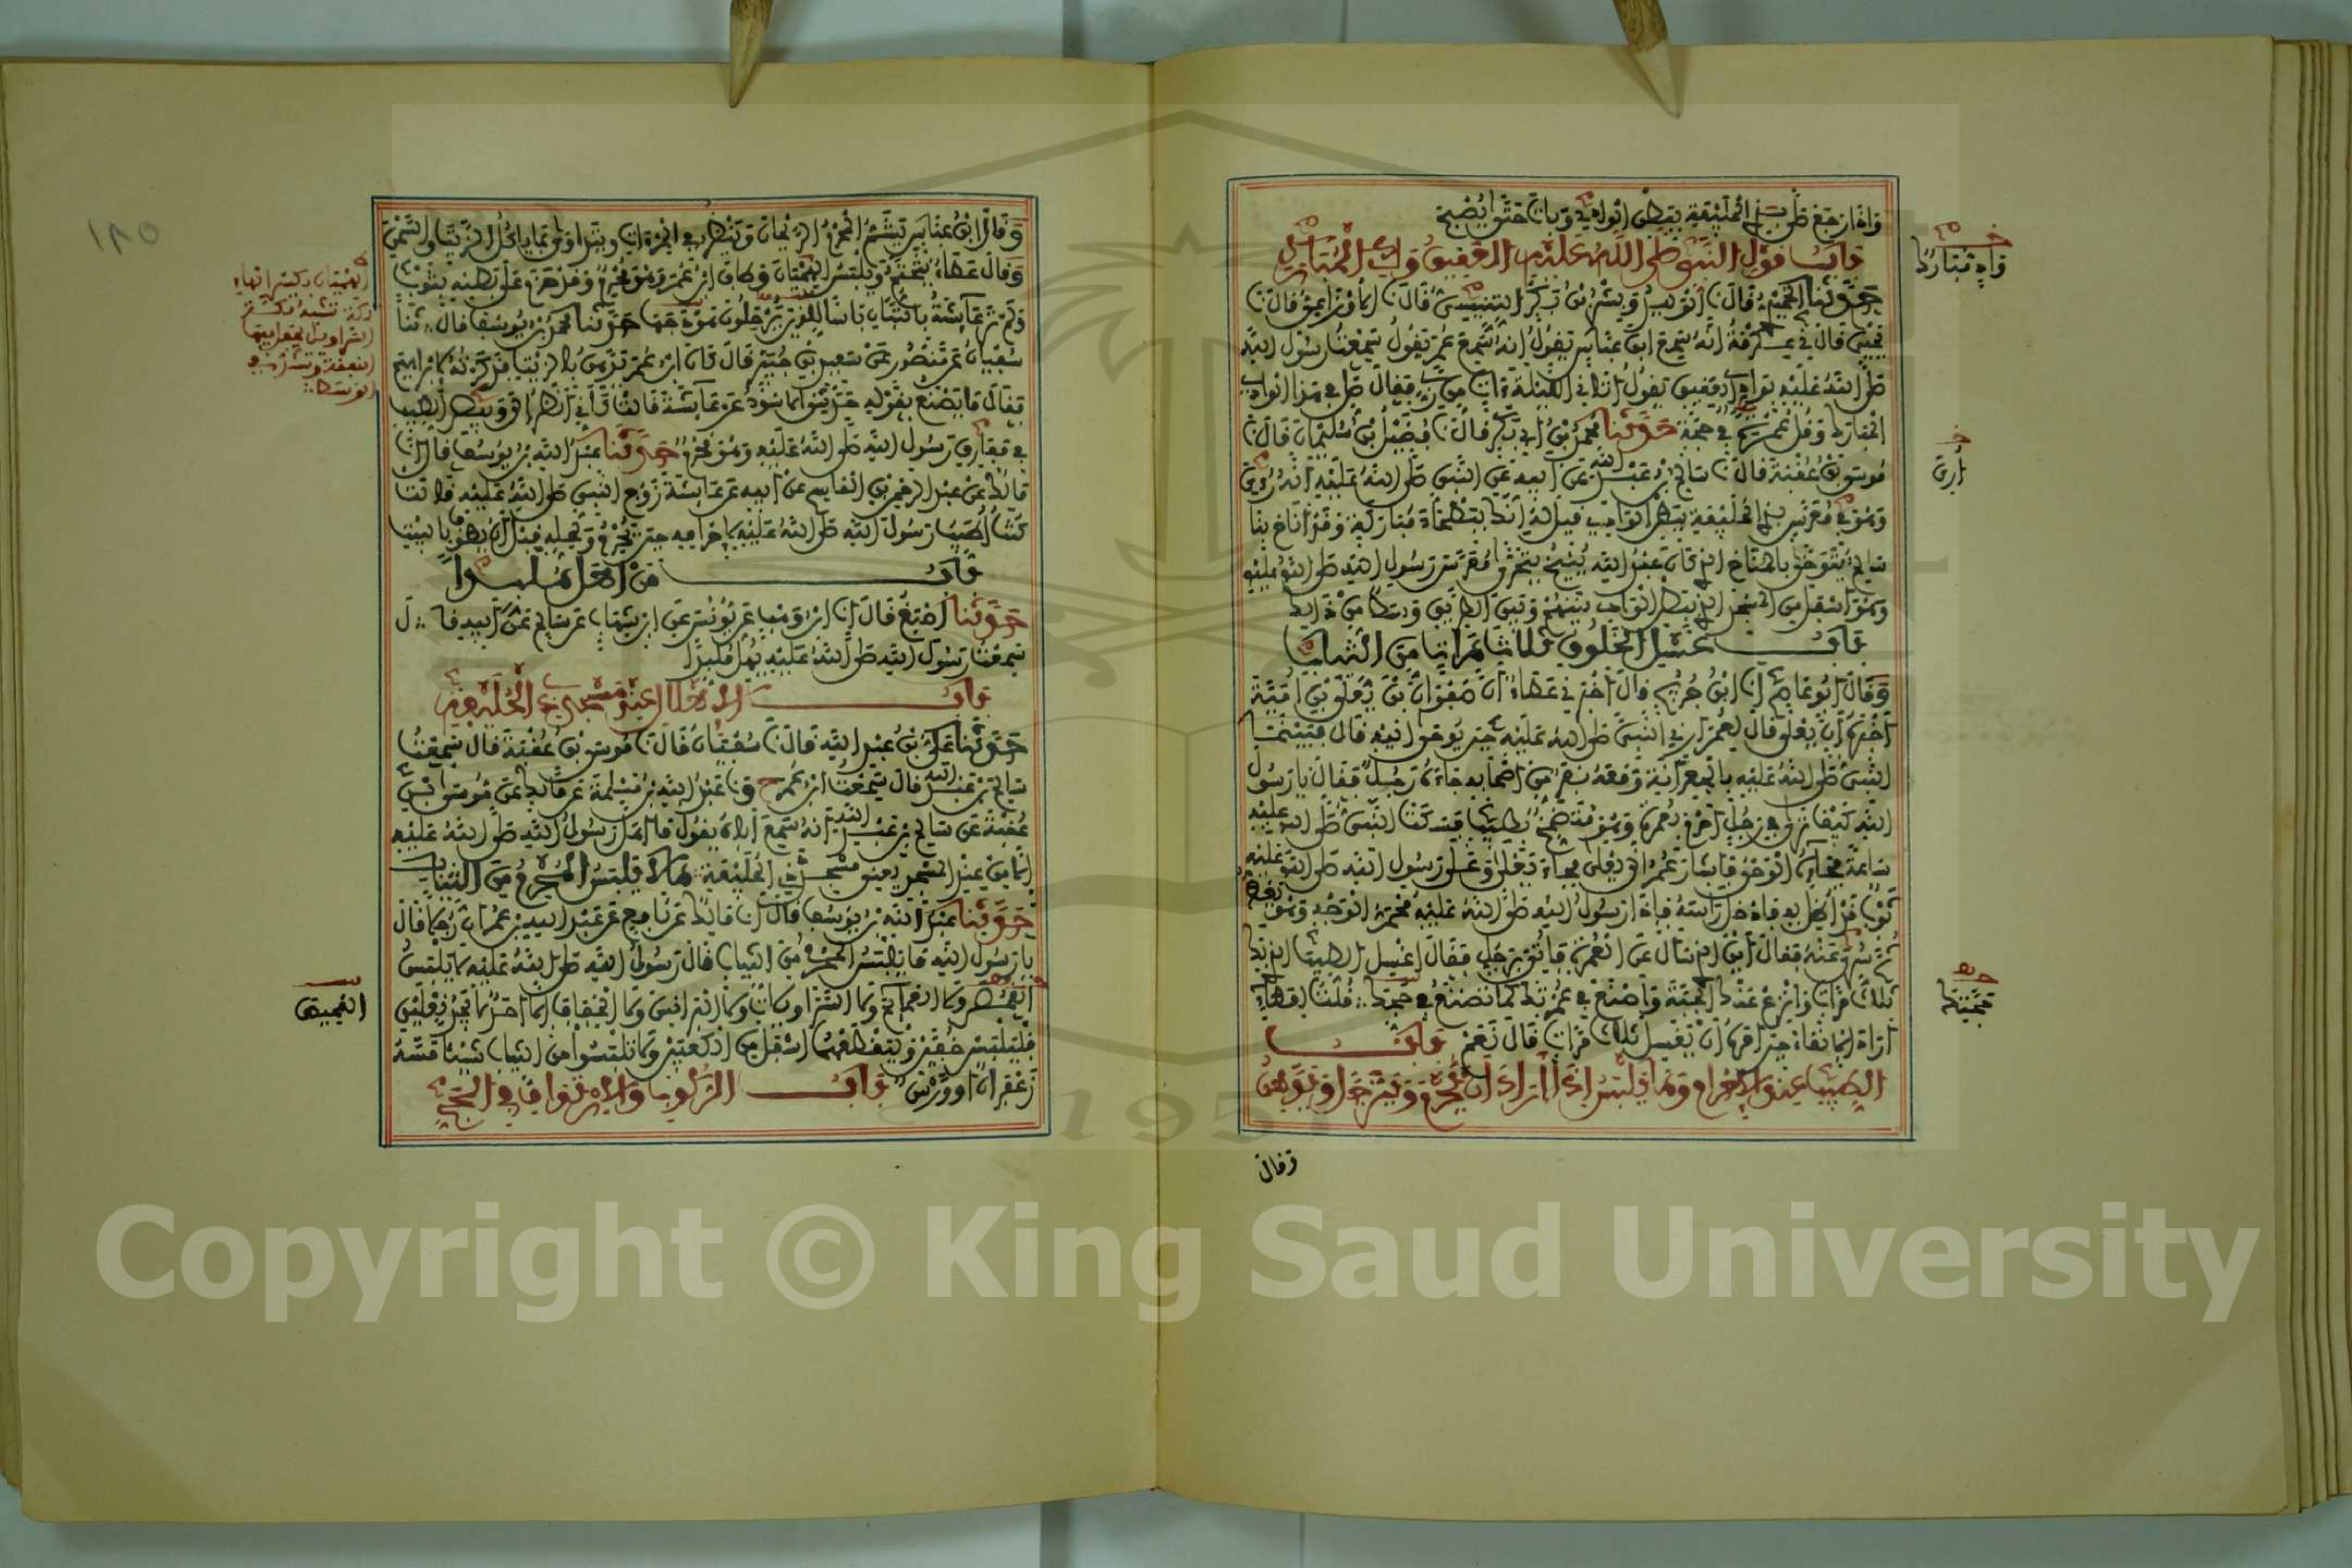 وإذا رجع صلى بذي الحليفة ببطن الوادي وبات حتى يصبح
باب قول النبي صلى الله عليه العقيق واد مبارك
حدثنا الحميدي قال نا الوليد وبشر بن بكر التنيسي قال نا الأوزاعي قال نا
يحيى قال ني عكرمة أنه سمع ابن عباس يقول إنه سمع عمر يقول سمعت رسول الله
صلى الله عليه بوادي العقيق يقول أتاني الليلة آت من ربي فقال صل في هذا الوادي
المبارك وقل عمرة في حجة حدثنا محمد بن أبي بكر قال نا فضيل بن سليمان قال نا
موسى بن عقبة قال نا سالم بن عبد الله عن أبيه عن النبي صلى الله عليه أنه رءي
وهو في معرس بذي الحليفة ببطن الوادي قيل له إنك ببطحاء مباركة وقد أناخ بنا
سالم يتوخى بالمناخ الذي كان عبد الله ينيخ يتحرى معرس رسول الله صلى الله عليه
وهو أسفل من المسجد الذي ببطن الوادي بينهم وبين الطريق وسط من ذلك
باب غسل الخلوق ثلاث مرات من الثياب
وقال أبو عاصم أنا ابن جريج قال أخبرني عطاء أن صفوان بن يعلى بن أمية
أخبره أن يعلى قال لعمر أرني النبي صلى الله عليه حين يوحى إليه قال فبينما
النبي صلى الله عليه بالجعرانة ومعه نفر من أصحابه جاءه رجل فقال يا رسول
الله كيف ترى في رجل أحرم بعمرة وهو متضمخ بطيب فسكت النبي صلى الله عليه
ساعة فجاءه الوحي فأشار عمر إلى يعلى فجاء يعلى وعلى رسول الله صلى الله عليه
ثوب قد أظل به فأدخل رأسه فإذا رسول الله صلى الله عليه محمر الوجه وهو يغط
ثم سري عنه فقال أين الذي سأل عن العمرة فأتي برجل فقال اغسل الطيب الذي بك
ثلاث مرات وانزع عنك الجبة واصنع في عمرتك كما تصنع في حجك قلت لعطاء
أراد الإنقاء حين أمره أن يغسل ثلاث مرات قال نعم باب
الطيب عند الإحرام وما يلبس إذا أراد أن يحرم ويترجل ويدهن
واد مبارك
أري
حجتك
وقال
وقال ابن عباس يشم المحرم الريحان وينظر في المرآة ويتداوى بما يأكل الزيت والسمن
وقال عطاء يتختم ويلبس الهميان وطاف ابن عمر وهو محرم وقد حزم على بطنه بثوب
ولم تر عائشة بالتبان بأسا للذين يرحلون هودجها حدثنا محمد بن يوسف قال نا
سفيان عن منصور عن سعيد بن جبير قال كان ابن عمر يدهن بالزيت فذكرته لإبراهيم
فقال ما تصنع بقوله حدثني الأسود عن عائشة قالت كأني أنظر إلى وبيص الطيب
في مفارق رسول الله صلى الله عليه وهو محرم حدثنا عبد الله بن يوسف قال أنا
مالك عن عبد الرحمن بن القاسم عن أبيه عن عائشة زوج النبي صلى الله عليه قالت
كنت أطيب رسول الله صلى الله عليه لإحرامه حين يحرم ولحله قبل أن يطوف بالبيت
باب من أهل ملبدا
حدثنا أصبغ قال أنا ابن وهب عن يونس عن ابن شهاب عن سالم عن أبيه قال
سمعت رسول الله صلى الله عليه يهل ملبدا
باب الإهلال عند مسجد ذي الحليفة
حدثنا علي بن عبد الله قال نا سفيان قال نا موسى بن عقبة قال سمعت
سالم بن عبد الله قال سمعت ابن عمر ح ونا عبد الله بن مسلمة عن مالك عن موسى بن
عقبة عن سالم بن عبد الله أنه سمع أباه يقول ما أهل رسول الله صلى الله عليه
إلا من عند المسجد يعني مسجد ذي الحليفة باب ما لا يلبس المحرم من الثياب
حدثنا عبد الله بن يوسف قال أنا مالك عن نافع عن عبد الله بن عمر أن رجلا قال
يا رسول الله ما يلبس المحرم من الثياب قال رسول الله صلى الله عليه لا يلبس
القمص ولا العمائم ولا السراويلات ولا البرانس ولا الخفاف إلا أحد لا يجد نعلين
فليلبس خفين وليقطعهما أسفل من الكعبين ولا تلبسوا من الثياب شيئا مسه
زعفران أو ورس باب الركوب والارتداف في الحج
الهميان بكسر الهاء
تكة
السراويل يجعل فيها
النفقة وتشد في
الوسط
القميص
١٨٥
Copyright © King Saud University
195